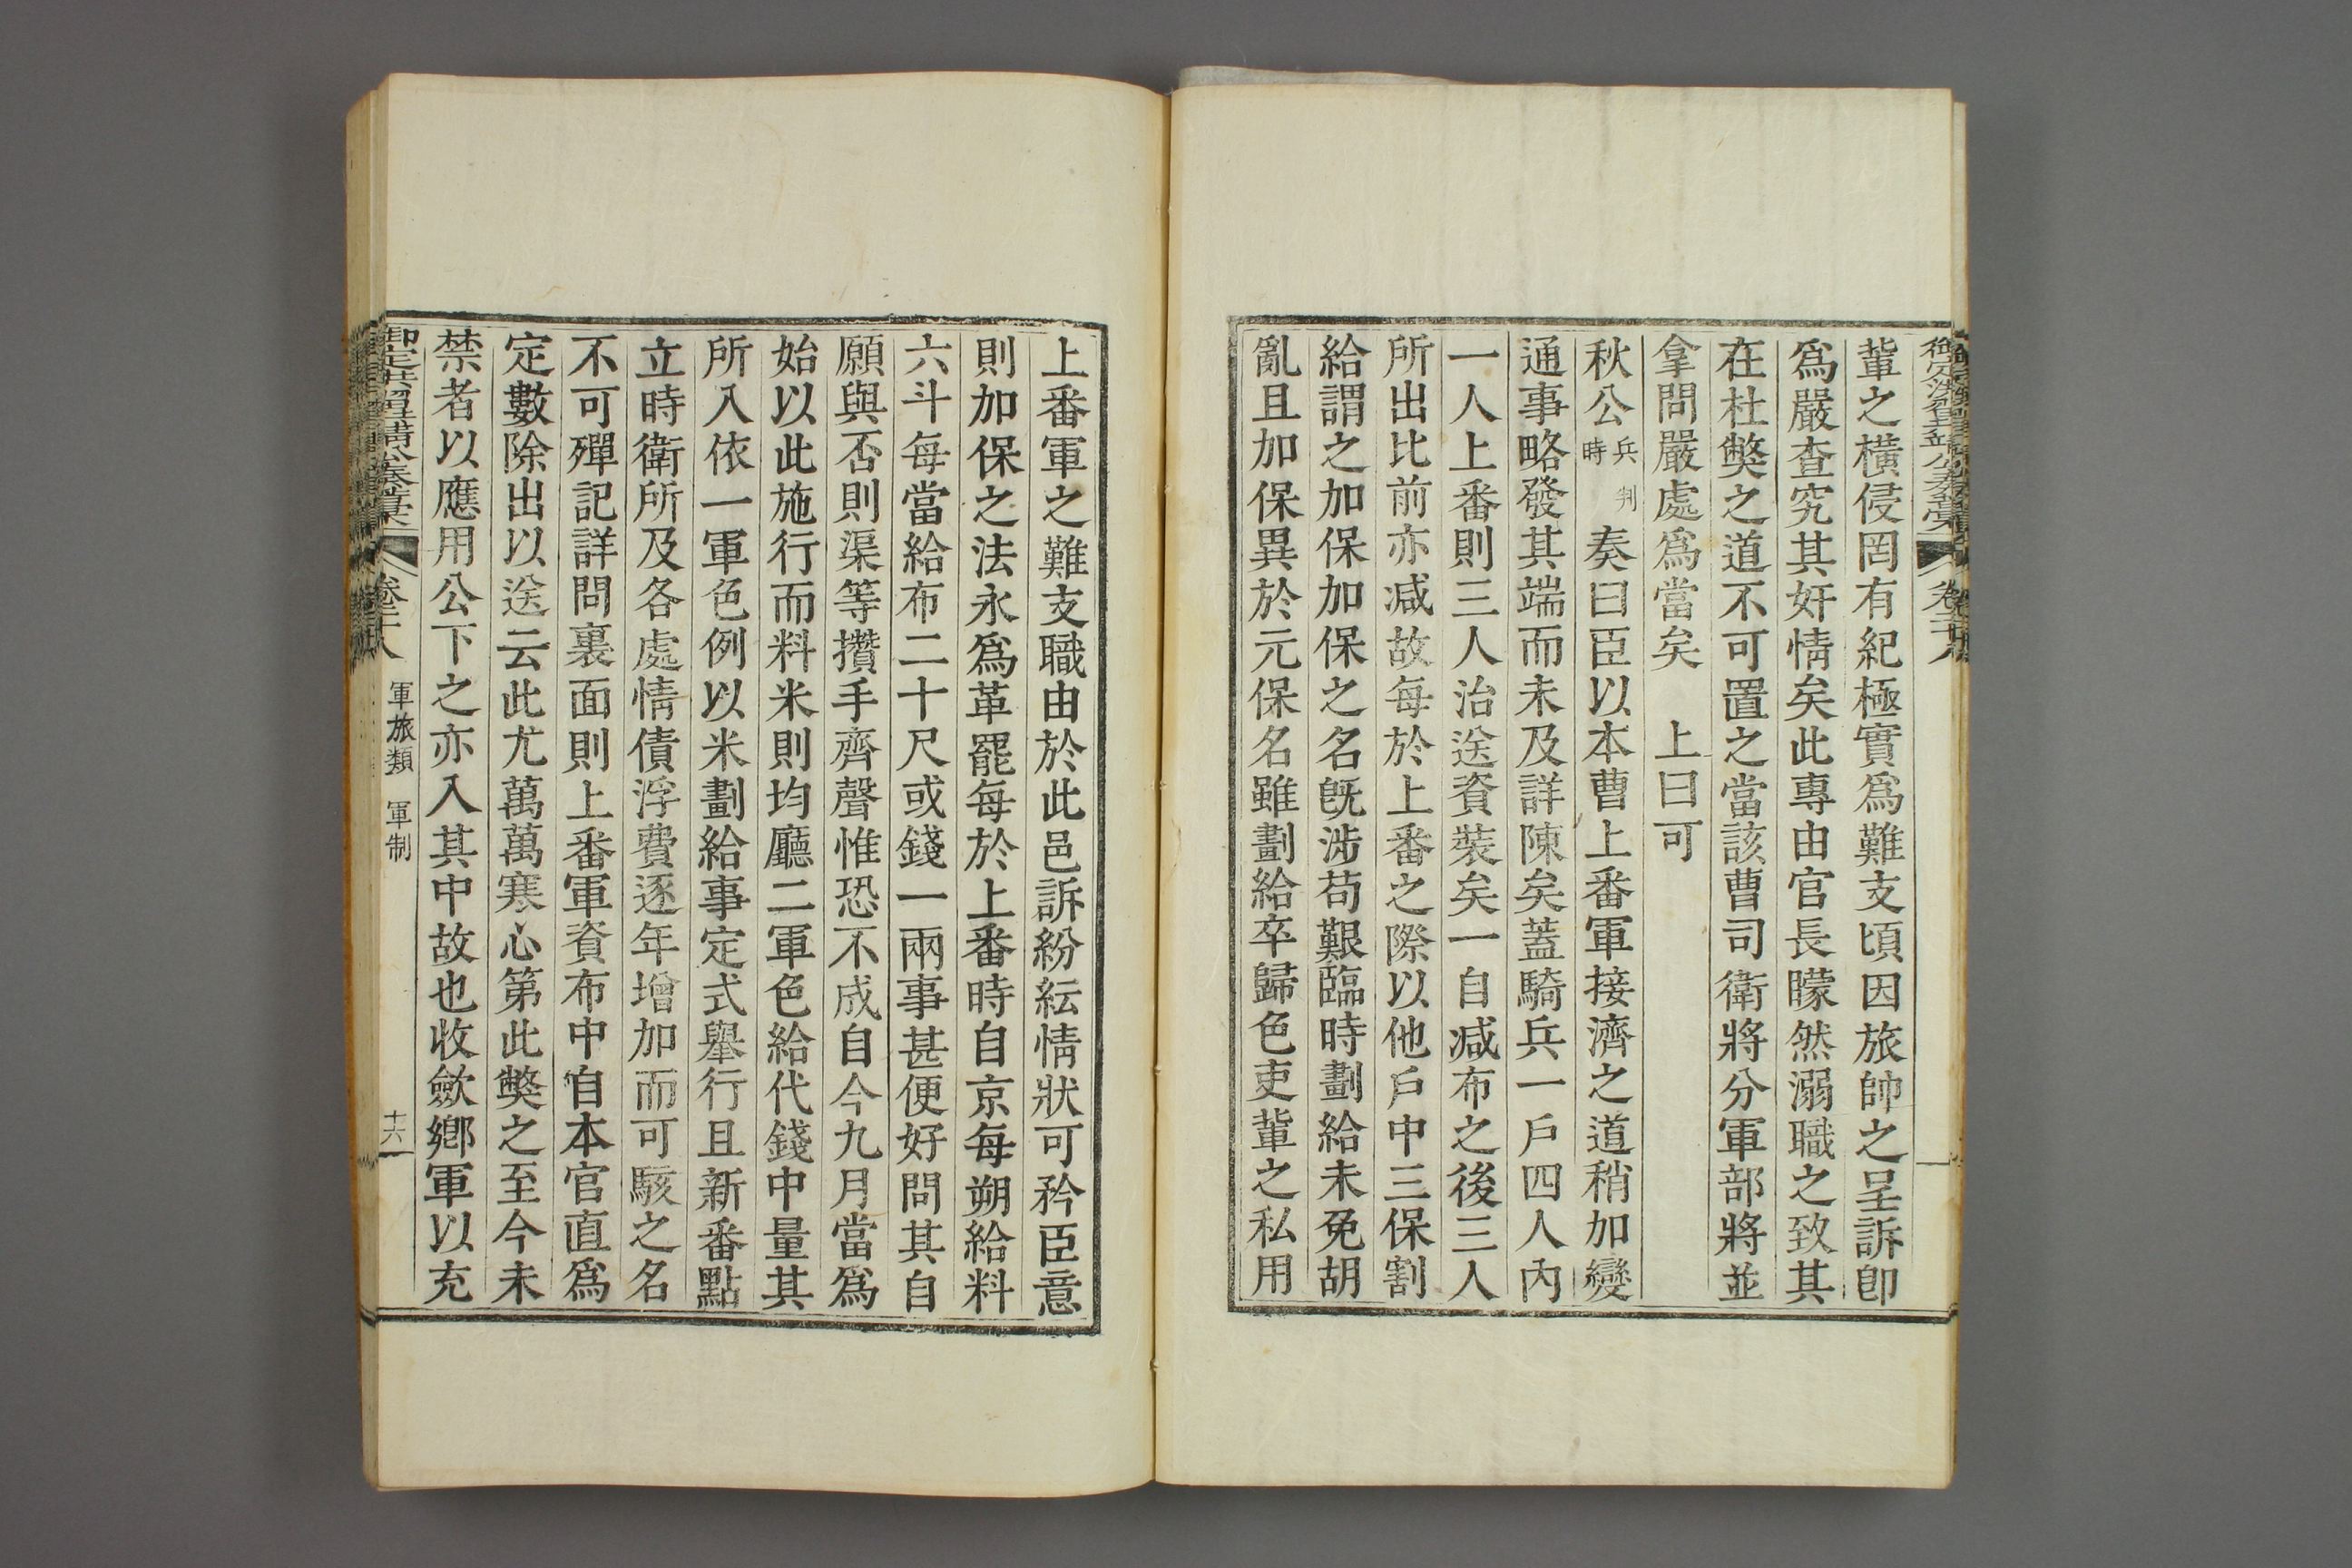 輩之橫侵罔有紀極實爲難支頃因旅帥之呈訴卽
爲嚴查究其奸情矣此專由官長矇然溺職之致其
在杜獘之道不可置之當該曹司衛將分軍部將並
拿問嚴處爲當矣 上曰可
秋公時兵判 奏曰臣以本曹上番軍接濟之道稍加變
通事略發其端而未及詳陳矣蓋騎兵一戶四人內
一人上番則三人治送資裝矣一自减布之後三人
所出比前亦减故每於上番之際以他戶中三保割
給謂之加保加保之名旣涉苟艱臨時劃給未免胡
亂且加保異於元保名雖劃給卒歸色吏輩之私用
上番軍之難支職由於此邑訴紛紜情狀可矜臣意
則加保之法永爲革罷每於上番時自京每朔給料
六斗每當給布二十尺或錢一兩事甚便好問其自
願與否則渠等攢手齊聲惟恐不成自今九月當爲
始以此施行而料米則均廳二軍色給代錢中量其
所入依一軍色例以米劃給事定式舉行且新番點
立時衛所及各處情債浮費逐年增加而可駭之名
不可殫記詳問裏面則上番軍資布中自本官直爲
定數除出以送云此尤萬萬寒心第此獘之至今未
禁者以應用公下之亦入其中故也收歛鄕軍以充
軍旅類 軍制
十六